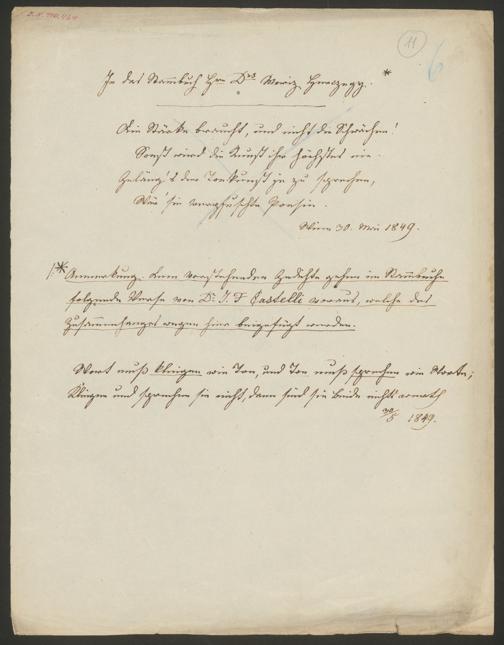 11
6
In das Stammbuch Hrn Drs Moriz *
Die Stärke braucht, und nicht die Schwächen!
Sonst wird die Kunst ihr Höchstes nie.
Geläng's der Tonkunst je zu sprechen,
Wär' sie verpfuschte Poesie.
Wien 30. Mai 1849.
* Anmerkung. Dem vorstehenden Gedichte gehen im Stammbuche
folgende Verse von Dr. I. F. Castelli voraus, welche des
Zusammenhanges wegen hier beigefügt werden.
Wort muß klingen wie Ton, und Ton muß sprechen wie Worte;
Klingen und sprechen sie nicht, dann sind sie beide nichts werth
30/5 1849.